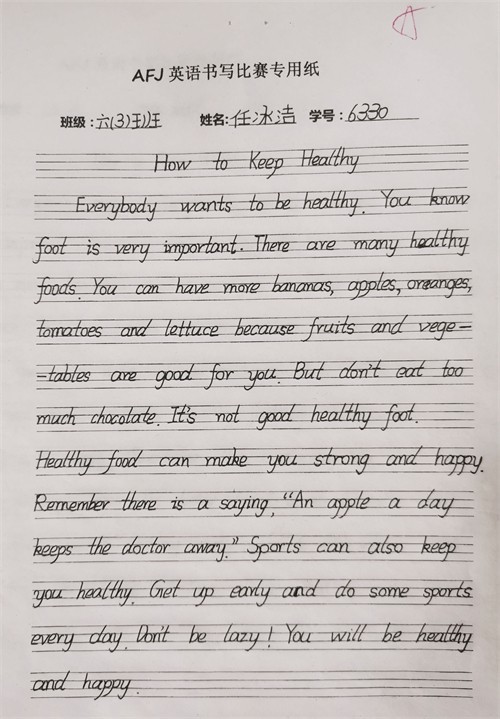 A
AFJ 英语书写比赛专用纸
班级:六(3)班 姓名:任冰洁 学号:6330
How to Keep Healthy
Everybody wants to be healthy. You know
foot is very important. There are many healthy
foods. You can have more bananas, apples, oreanges,
tomatoes and lettuce because fruits and vege-
-tables are good for you. But don't eat too
much chocolate. It's not good healthy foot.
Healthy food can make you strong and happy.
Remember there is a saying, "An apple a day
keeps the doctor away." Sports can also keep
you healthy. Get up early and do some sports
every day. Don't be lazy! You will be healthy
and happy.